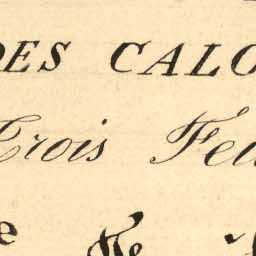 DES CALO
Trois Feu
e &